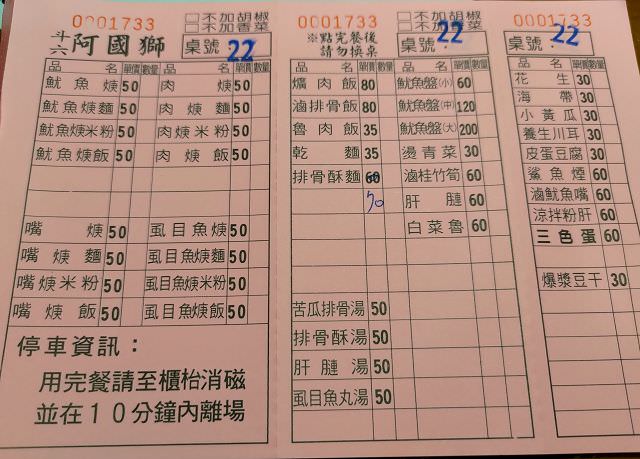 0001733
□不加胡椒
□不加香菜
斗六 阿國獅
桌號 22
品名 單價 數量 品名 單價 數量
魷魚焿 50 肉焿 50
魷魚焿麵 50 肉焿麵 50
魷魚焿米粉 50 肉焿米粉 50
魷魚焿飯 50 肉焿飯 50
嘴焿 50 虱目魚焿 50
嘴焿麵 50 虱目魚焿麵 50
嘴焿米粉 50 虱目魚焿米粉 50
嘴焿飯 50 虱目魚焿飯 50
停車資訊：
用完餐請至櫃枱消磁
並在10分鐘內離場
0001733
□不加胡椒
□不加香菜
※點完餐後
請勿換桌
桌號： 22
品名 單價 數量 品名 單價 數量
爌肉飯 80 魷魚盤(小) 60
滷排骨飯 80 魷魚盤(中) 120
魯肉飯 35 魷魚盤(大) 200
乾麵 35 燙青菜 30
排骨酥麵 60 滷桂竹筍 60
70 肝膶 60
白菜魯 60
苦瓜排骨湯 50
排骨酥湯 50
肝膶湯 50
虱目魚丸湯 50
0001733
桌號： 22
品名 單價 數量
花生 30
海帶 30
小黃瓜 30
養生川耳 30
皮蛋豆腐 30
鯊魚煙 60
滷魷魚嘴 60
涼拌粉肝 60
三色蛋 60
爆漿豆干 30